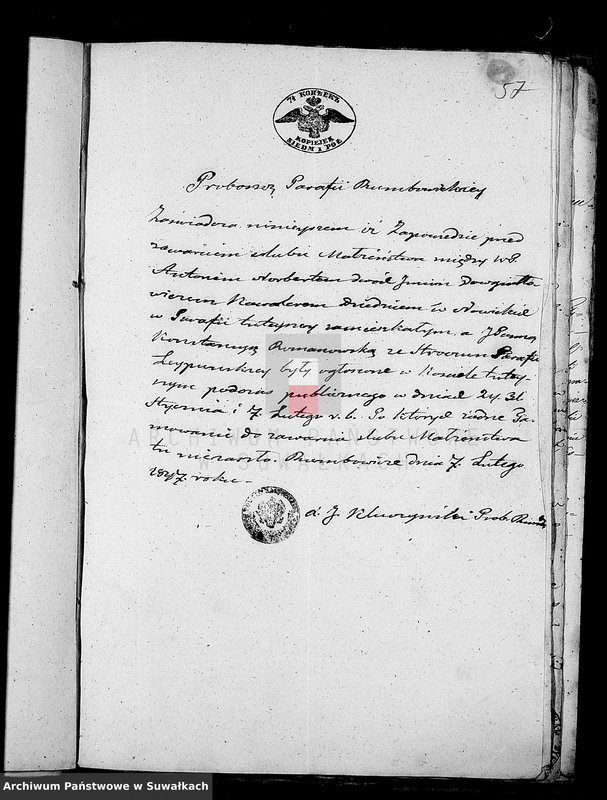 57
7½ КОПѢЕКЪ
KOPIEJEK
SIEDM I PÓŁ
Proboszcz Parafii Rumbowickiey
Zaświadcza niniejszem iż Zapowiedzie przed
zawarciem slubu Małżeństwa między WP.
Antonim Norbertem dwóch Jmion
Kawalerem Dziedzicem w
w Parafii tutejszey zamieszkałym, a J Panną
Konstancyą Romanowską ze Parafii
Leypunskiey były ogłoszone w Kosciele tutey-
szym podczas publicznego w dniach 24. 31.
Stycznia i 7. Lutego r. b. Po których żadne Ta-
mowanie do zawarcia slubu Małżeństwa
tu niezaszło. Rumbowicze dnia 7. Lutego
1847. roku.
X. J. Prob. Rumb
ARCHIWUM PAŃSTWOWE
W SUWAŁKACH
Archiwum Państwowe w Suwałkach